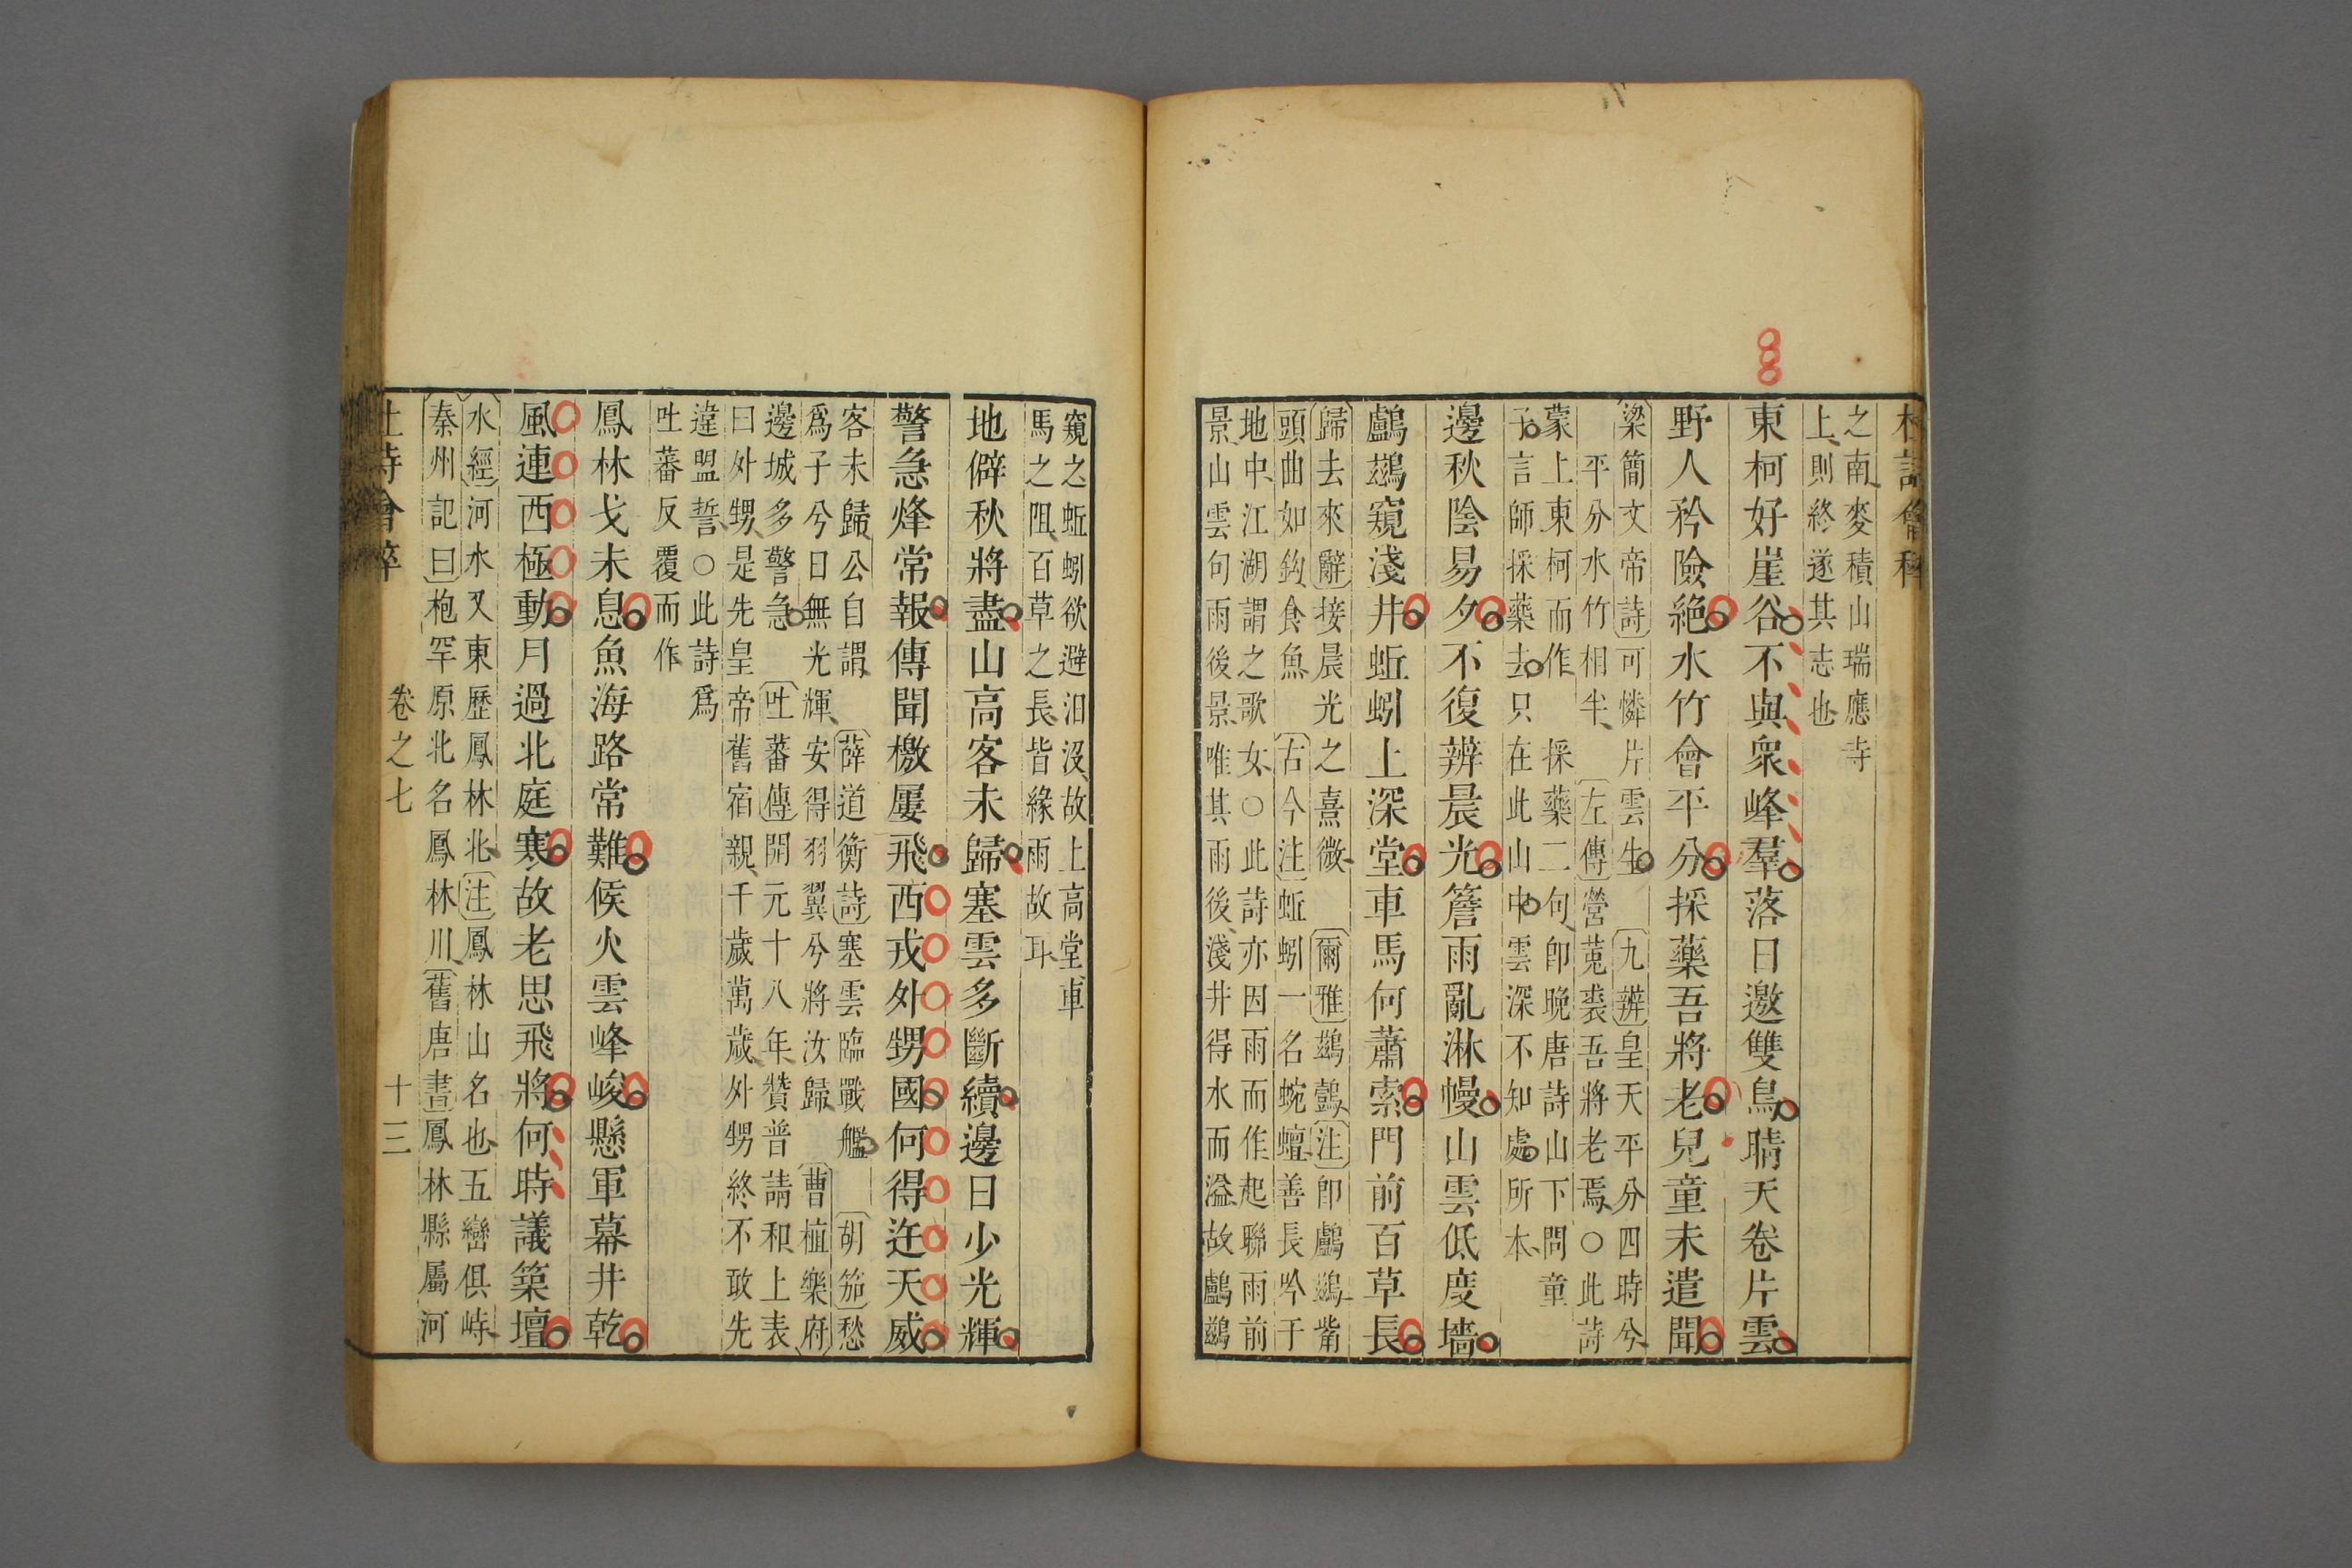 杜詩會稡
之南麥積山瑞應寺
上則終遂其志也
東柯好崖谷不與衆峰羣落日邀雙鳥晴天卷片雲
野人矜險絕水竹會平分採藥吾將老兒童未遣聞
梁簡文帝詩可憐片雲生 九辨皇天平分四時兮
平分水竹相半 左傳營菟裘吾將老焉○此詩
蒙上東柯而作 採藥二句卽晚唐詩山下問童
子言師採藥去只在此山中雲深不知處所本
邊秋陰易夕不復辨晨光簷雨亂淋幔山雲低度墻
鸕鷀窺淺井蚯蚓上深堂車馬何蕭索門前百草長
歸去來辭接晨光之熹微 爾雅鷀鷧注卽鸕鷀觜
頭曲如鈎食魚 古今注蚯蚓一名蜿蟺善長吟于
地中江湖謂之歌女○此詩亦因雨而作起聯雨前
景山雲句雨後景唯其雨後淺井得水而溢故鸕鷀
窺之蚯蚓欲避汨沒故上高堂車
馬之阻百草之長皆緣雨故耳
地僻秋將盡山高客未歸塞雲多斷續邊日少光輝
警急烽常報傳聞檄屢飛西戎外甥國何得迕天威
客未歸公自謂 薛道衡詩塞雲臨戰艦 胡笳愁
爲子兮日無光輝安得羽翼兮將汝歸 曹植樂府
邊城多警急 吐蕃傳開元十八年贊普請和上表
曰外甥是先皇帝舊宿親千歲萬歲外甥終不敢先
違盟誓○此詩爲
吐蕃反覆而作
鳳林戈未息魚海路常難候火雲峰峻懸軍幕井乾
風連西極動月過北庭寒故老思飛將何時議築壇
水經河水又東歷鳳林北注鳳林山名也五巒俱峙
秦州記曰枹罕原北名鳳林川舊唐書鳳林縣屬河
杜詩會稡 卷之七 十三